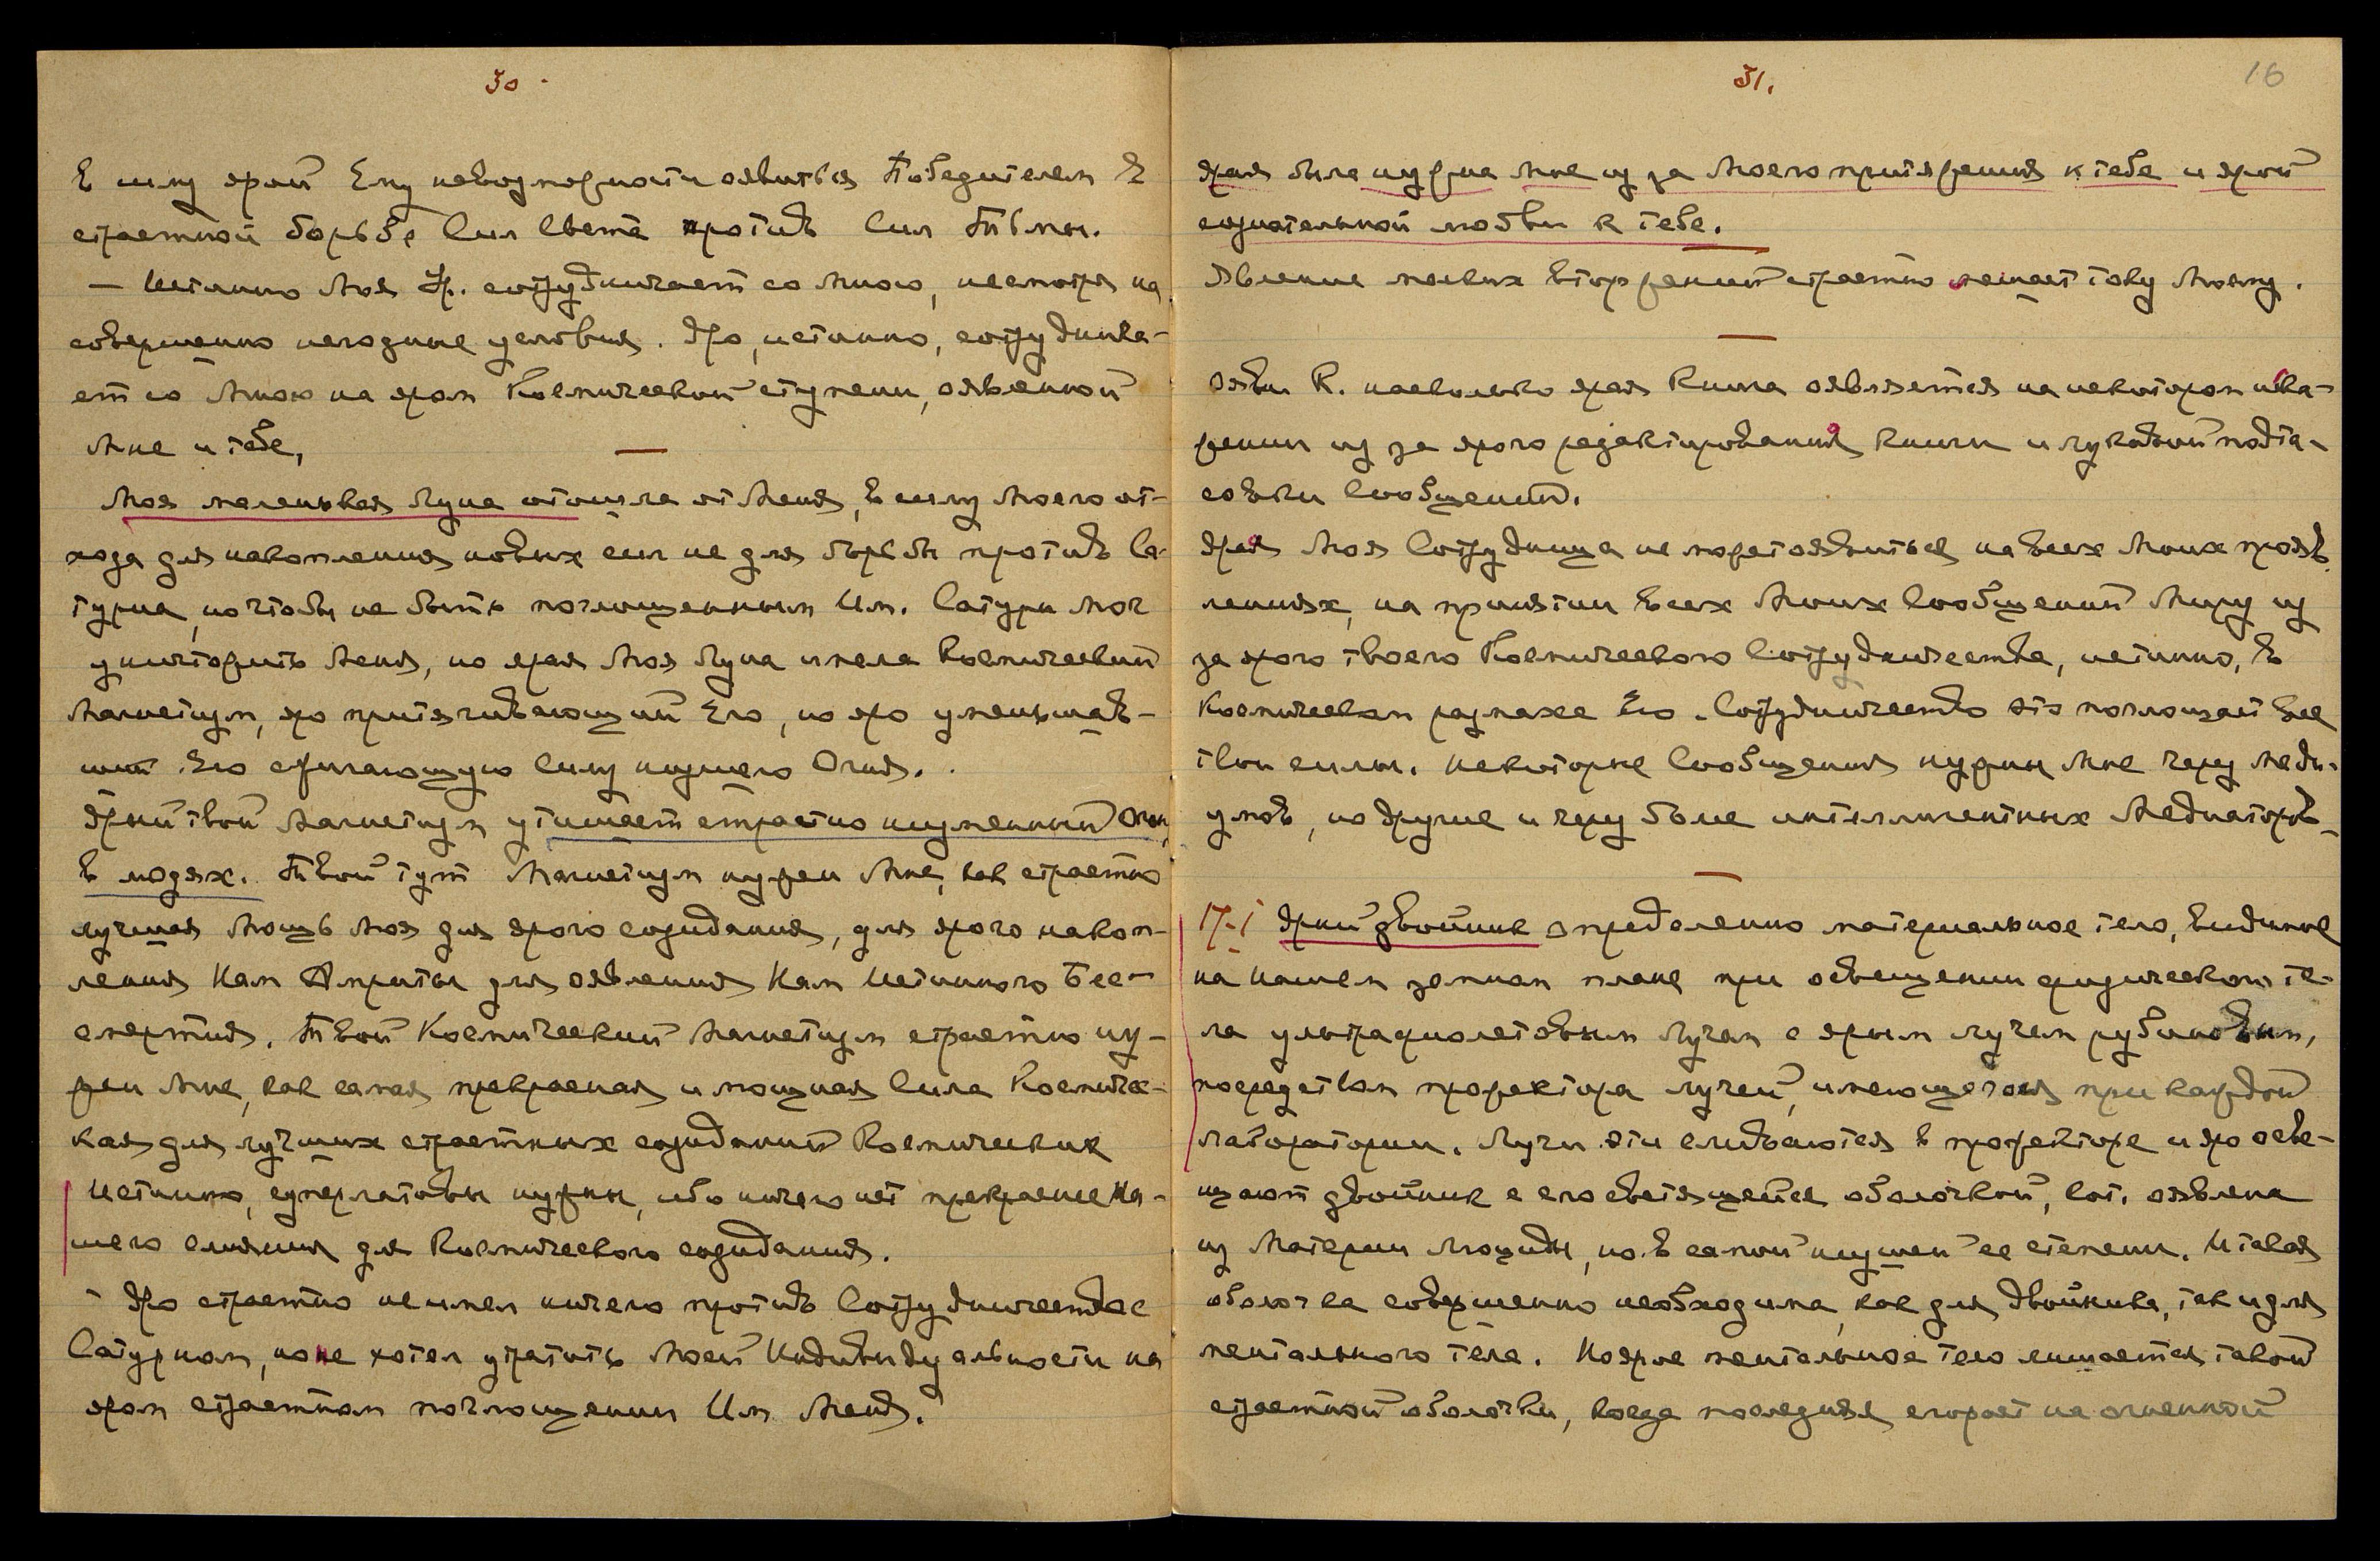 30.
В силу ярой Ему невозможности оявиться Победителем в
страстной борьбе Сил Света против Сил Тьмы.
— Истинно Моя Ур. сотрудничает со Мною, несмотря на
совершенно негодные условия. Яро, истинно, сотруднича-
ет со Мною на ярой Космической ступени, оявленной
Мне и тебе,
Моя маленькая Луна отошла от Меня, в силу Моего от-
хода для накопления новых сил не для борьбы против Са-
турна, но чтобы не быть поглощенным Им. Сатурн мог
уничтожить Меня, но ярая Моя Луна имела Космический
Магнетизм, яро притягивающий Его, но яро уменьшав-
ший Его сжигающую силу низшего Огня.
Ярый твой Магнетизм утишает страстно низменный огонь
в людях. Твой тут Магнетизм нужен Мне, как страстно
лучшая Мощь Моя для ярого созидания, для ярого накоп-
ления Нам Амриты для оявления Нам Истинного Бес-
смертия. Твой Космический Магнетизм страстно ну-
жен Мне, как самая прекрасная и мощная Сила Космичес-
кая для лучших страстных созиданий Космических
Истинно, суперлативы нужны, ибо ничего нет прекраснее На-
шего слияния для Космического созидания.
- Яро страстно не имел ничего против Сотрудничества с
Сатурном, но не хотел утратить Моей Индивидуальности на
яром страстном поглощении Им Меня.
31.
16
Ярая была нужна Мне из за Моего притяжения к тебе и ярой
сознательной любви к тебе.
Явление мелких вторжений страстно мешает току Моему.
Ояви К. насколько ярая Книга оявляется на некотором иска-
жении из за ярого редактирования книги и лукавой подта-
совки Сообщений.
Ярая Моя Сотрудница не может оявиться на всех Моих прояв-
лениях, на принятии всех Моих Сообщений Миру из
за ярого твоего Космического Сотрудничества, истинно, в
Космическом размахе Его. Сотрудничество это поглощает все
твои силы. Некоторые Сообщения нужны Мне через меди-
умов, но другие и через более интеллигентных Медиаторов.
17-I Ярый двойник определенно материальное тело, видимое
на нашем земном плане при освещении физического те-
ла ультрафиолетовым лучом с ярым лучем рубиновым,
посредством прожектора лучей, имеющегося при каждой
лаборатории. Лучи эти сливаются в прожекторе и яро осве-
щают двойник с его светящейся оболочкой, кот. оявлена
из Материи Люциды, но в самой низшей ее степени. И такая
оболочка совершенно необходима, как для двойника, так и для
ментального тела. Но ярое ментальное тело лишается такой
страстной оболочки, когда последняя сгорает на огненной